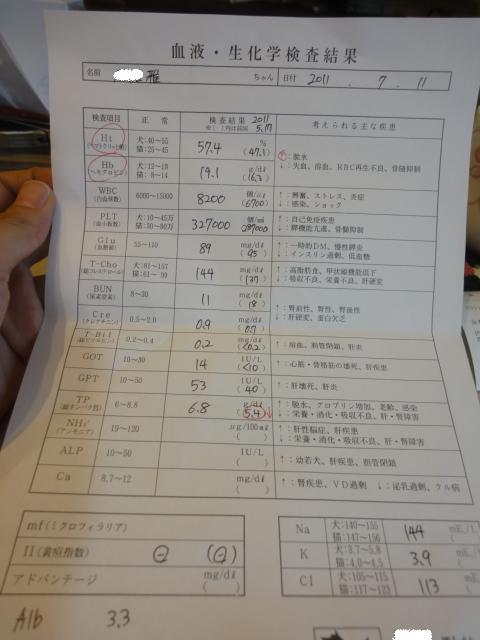 血液・生化学検査結果
名前 雅 ちゃん 日付 2011 . 7 . 11
検査項目 正常 検査結果 2011 考えられる主な疾患
( )内は前回 5.17
Ht (ヘマトクリット値) 犬:40〜55 猫:25〜45 57.4 % (47.1) ↑:脱水
Hb (ヘモグロビン) 犬:12〜18 猫:8〜14 19.1 g/dℓ (16.3) ↓:失血、溶血、RBC再生不良、骨髄抑制
WBC (白血球数) 6000〜15000 8200 (6700) ↑:興奮、ストレス、炎症 ↓:感染、ショック
PLT (血小板数) 犬:10〜45万 猫:30〜80万 327000 (287000) ↑:自己免疫疾患 ↓:脾機能亢進、骨髄抑制
Glu (血糖値) 55〜110 89 mg/dℓ (95) ↑:一時的DM、慢性膵炎 ↓:インスリン過剰、低血糖
T-Cho (総コレステロール) 犬:81〜157 猫:61〜99 144 mg/dℓ (137) ↑:高脂肪食、甲状腺機能低下 ↓:吸収不良、栄養不良、肝硬変
BUN (尿素窒素) 8〜30 11 mg/dℓ (18) ↑:腎前性、腎性、腎後性
Cre (クレアチニン) 0.5〜2.0 0.9 mg/dℓ (0.7) ↓:肝硬変、蛋白欠乏
T-Bil (総ビリルビン) 0.2〜0.4 0.2 mg/dℓ (<0.2) ↑:溶血、胆管閉鎖、肝炎
GOT 10〜30 14 IU/L (<10) ↑:心筋・骨格筋の壊死、肝疾患
GPT 10〜50 53 IU/L (40) ↑:肝壊死、肝炎
TP (総タンパク性) 6〜8.8 6.8 g/dℓ (5.4)↓ ↑:脱水、グロブリン増加、老齢、感染 ↓:栄養・消化・吸収不良、肝・腎障害
NH₃ (アンモニア) 19〜120 μg/100mℓ ( ) ↑:肝性脳症、肝疾患 ↓:栄養・消化・吸収不良、肝・腎障害
ALP 10〜50 IU/L ( ) ↑:幼若犬、肝疾患、胆管閉鎖
Ca 8.7〜12 mg/dℓ ( ) ↑:腎疾患、VD過剰 ↓:泌乳過剰、クル病
mf(ミクロフィラリア)
II(黄疸指数) ⊖ (⊖)
アドバンテージ mg/dℓ ( )
Na 犬:140〜155 猫:147〜156 144 mE/L
K 犬:3.7〜5.8 猫:4.0〜4.5 3.9 mE/L
Cl 犬:105〜115 猫:117〜123 113 mE/L
Alb 3.3